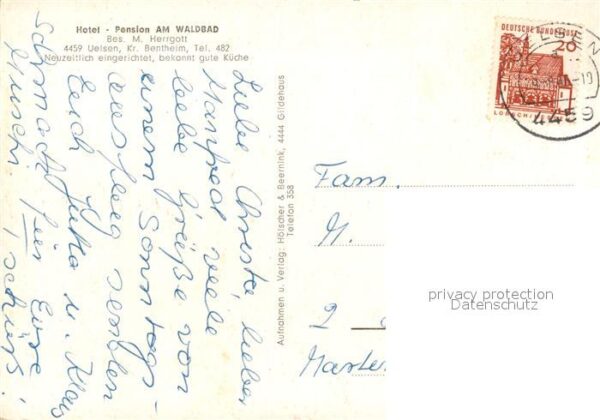 Hotel - Pension AM WALDBAD
Bes. M. Herrgott
4459 Uelsen, Kr. Bentheim, Tel. 482
Neuzeitlich eingerichtet, bekannt gute Küche
Liebe Christa, lieber
Manfred, viele
liebe Grüße von
einem Sonntags-
ausflug senden
Euch Jutta u. Klaus
für Eure
, tschüß!
Aufnahmen u. Verlag: Hölscher & Beernink, 4444 Gildehaus
Telefon 358
DEUTSCHE BUNDESPOST
20
LORSCH
UELSEN
4459
Fam.
M.
2
privacy protection
Datenschutz